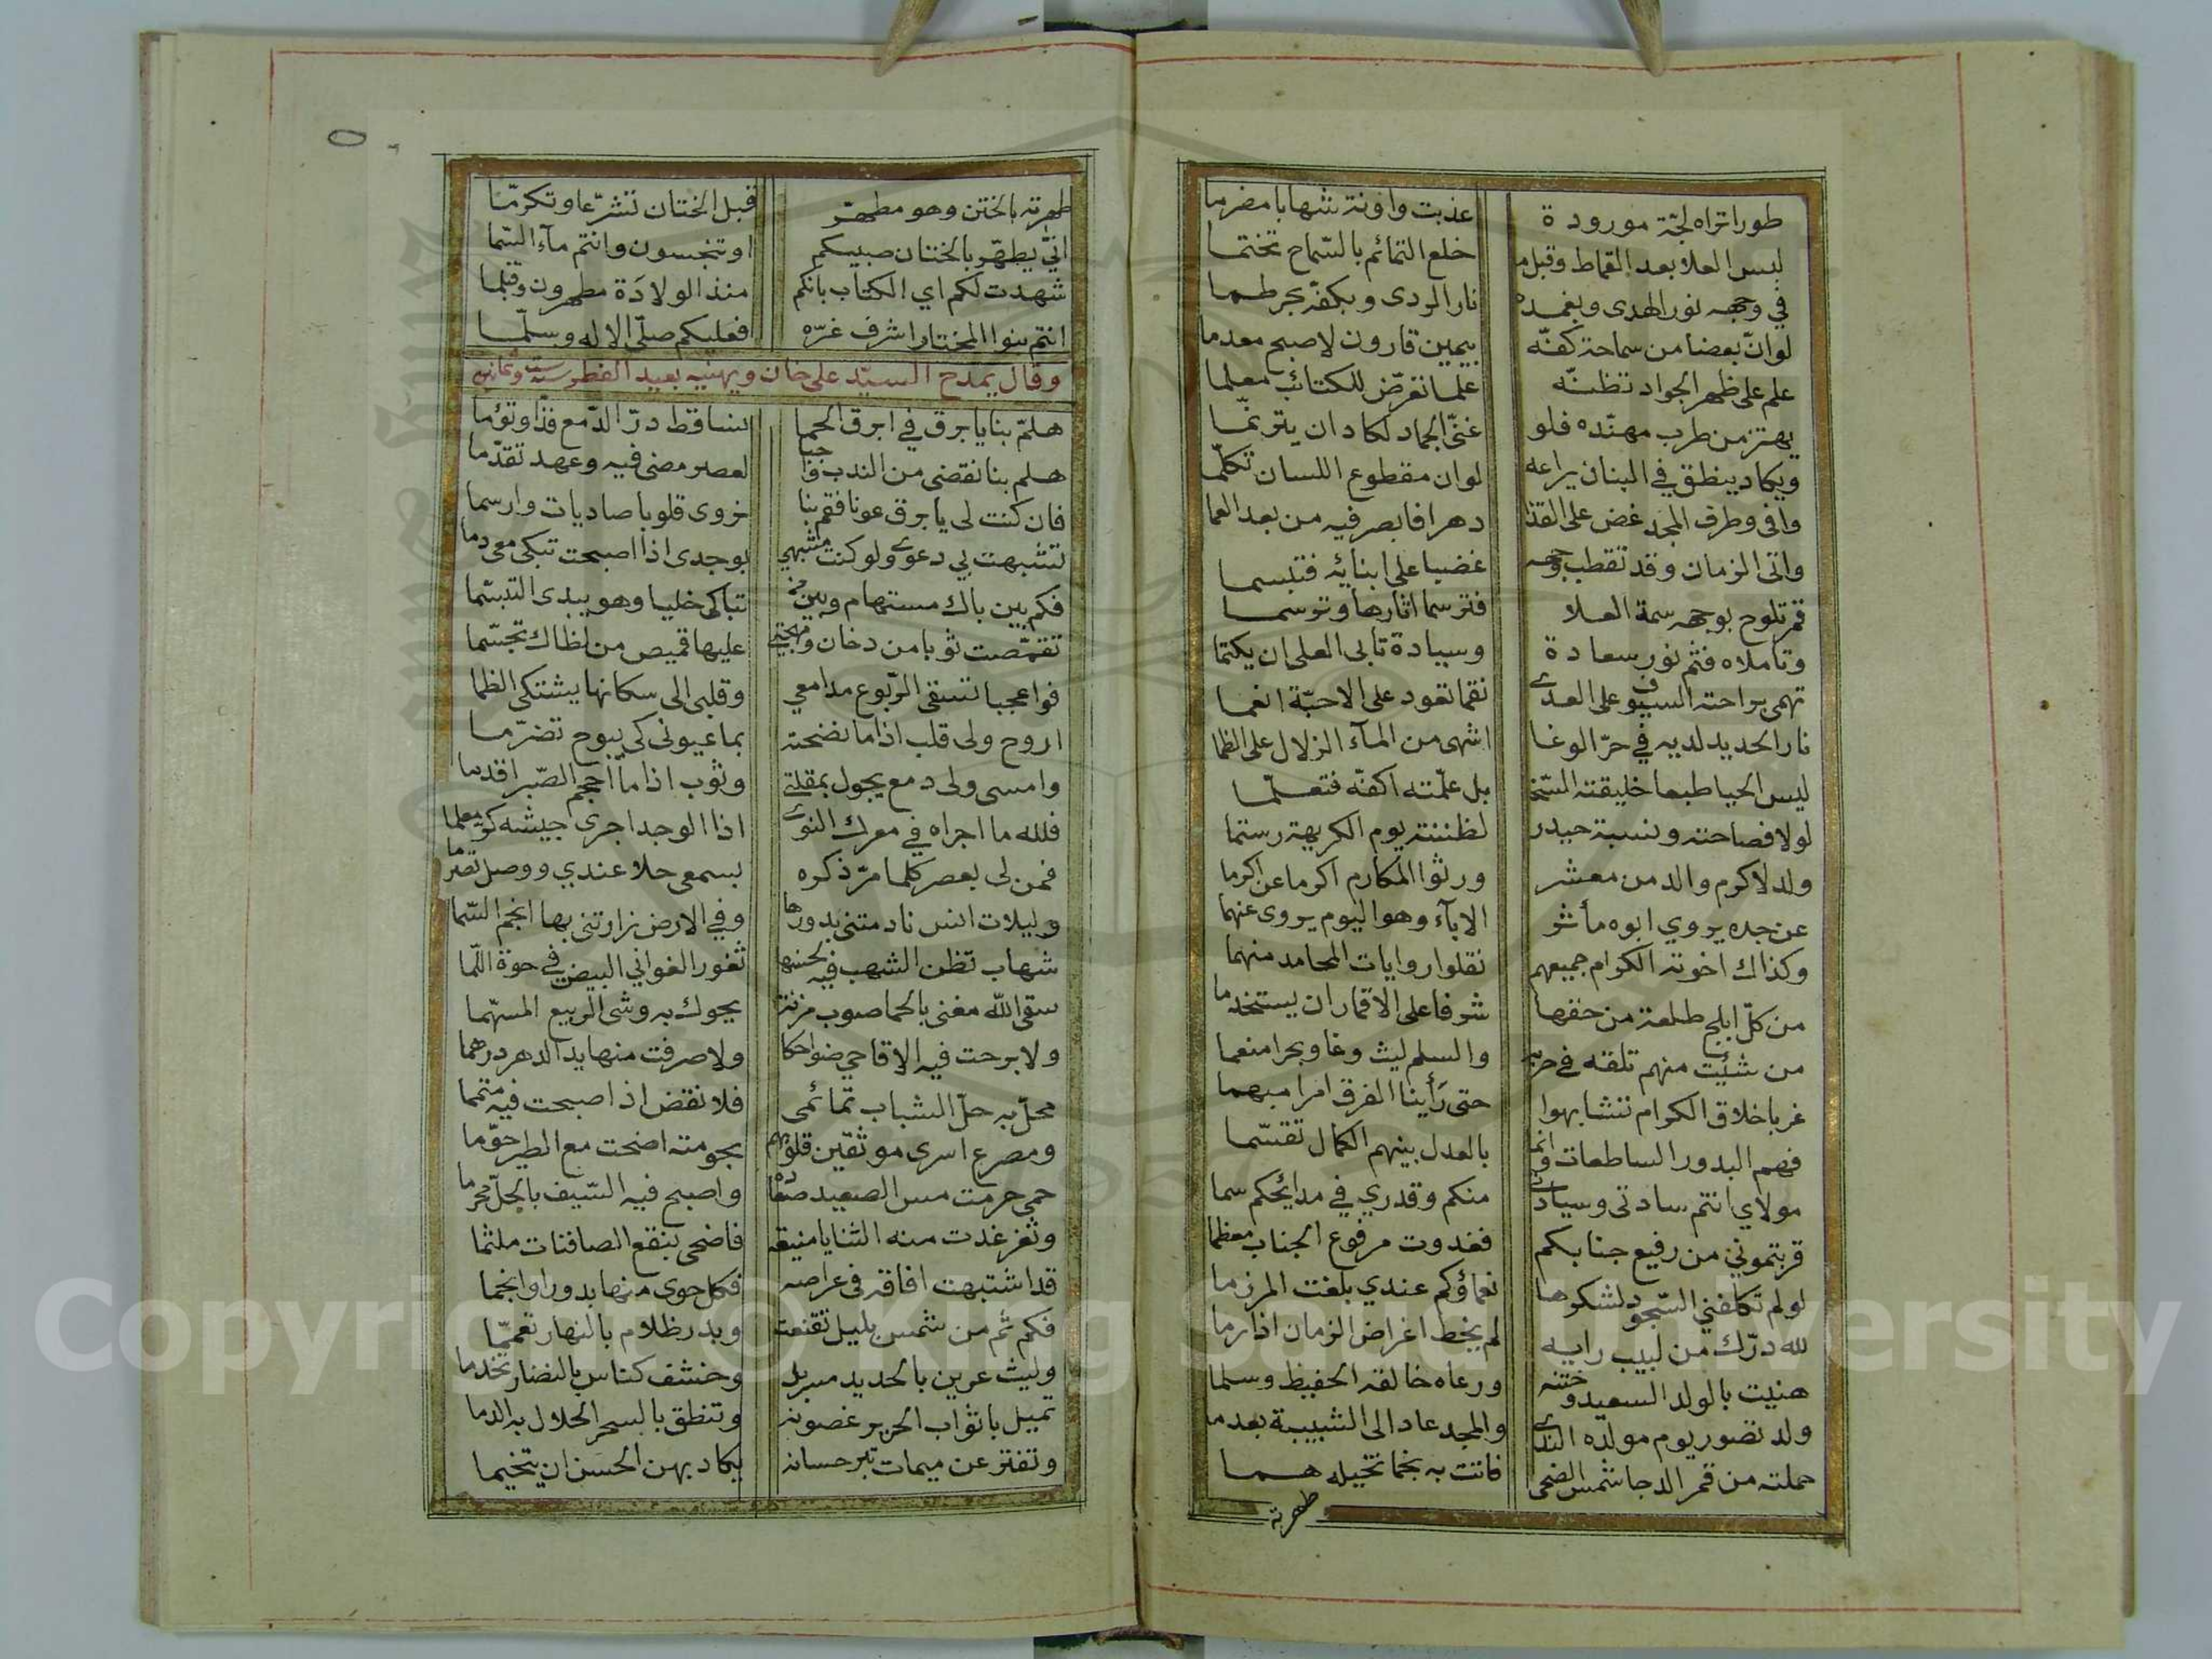 طورا تراه لجّة مورودة عذبت واونة شهابا مضرما
لبس العلا بعد القماط وقبل ما خلع التمائم بالسّماح تختما
في وجهه نور الهدى وبغمده نار الردى وبكفّه بحر طما
لو انّ بعضا من سماحة كفّه بيمين قارون لاصبح معدما
علم على ظهر الجواد تظنّه علما تعرّض للكتائب معلما
يهتز من طرب مهنّده فلو غنّى الجماد لكاد ان يترنّما
ويكاد ينطق في البنان يراعه لو ان مقطوع اللسان تكلّما
وافى وطرف المجد غض على القذا دهرا فابصر فيه من بعد العما
واتى الزمان وقد تقطب وجهه غضبا على ابنائه فتبسما
قمر تلوح بوجهه سمة العلا فترسما اثارها وتوسما
وتاملاه فثم نور سعادة وسيادة تابى العلى ان يكتما
تهمى براحته السيوف على العدى نقما تعود على الاحبّة انعما
نار الحديد لديه في حرّ الوغا اشهى من المآء الزلال على الظما
ليس الحيا طبعا خليقته السّخا بل علّمته اكفّه فتعلّما
لولا فصاحته ونسبة حيدر لظننته يوم الكريهة رستما
ولد لاكرم والد من معشر ورثوا المكارم اكرما عن اكرما
عن جده يروي ابوه مأثر الابآء وهو اليوم يروى عنهما
وكذاك اخوته الكرام جميعهم نقلوا روايات المحامد منهما
من كلّ ابلج طلعة من حقها شرفا على الاقمار ان يستخدما
من شئت منهم تلقه في حربه والسلم ليث وغا وبحرا منعما
غر باخلاق الكرام تشابهوا حتى رأينا الفرق امرا مبهما
فهم البدور الساطعات وانما بالعدل بينهم الكمال تقسّما
مولاي انتم سادتى وسيادتى منكم وقدري في مدائحكم سما
قربتموني من رفيع جنابكم فغدوت مرفوع الجناب معظما
لو لم تكلفني السّجود لشكرها نعماؤكم عندي بلغت المرزما
لله درّك من لبيب رايه لم يخط اغراض الزمان اذا رما
هنيت بالولد السعيد وختنه ورعاه خالقه الحفيظ وسلما
ولد تصور يوم مولده الندى والمجد عاد الى الشبيبة بعدما
حملته من قمر الدجا شمس الضحى فاتت به نجما تخيله هما
طهرته
طهرته بالختن وهو مطهّر قبل الختان تشرّعا وتكرمّا
انّي يطهّر بالختان صبيكم او تنجسون وانتم مآء السّما
شهدت لكم اي الكتاب بانكم منذ الولادة مطهرون وقبلما
انتم بنوا المختار اشرف غرّه فعليكم صلّى الاله وسلّما
وقال يمدح السيّد على خان ويهنيه بعيد الفطر سنة ست وثمانين
هلمّ بنا يا برق في ابرق الحما نساقط درّ الدّمع فذّا وتؤما
هلم بنا نقضى من الندب واجبا لعصر مضى فيه وعهد تقدّما
فان كنت لى يا برق عونا فقم بنا نروى قلوبا صاديات وارسما
تشبهت بي دعوى ولو كنت مشبهي بوجدى اذا اصبحت تبكى معى دما
فكم بين باك مستهام وبين من تباكى خليا وهو يبدى التبسّما
تقمّصت ثوبا من دخان ومهجتي عليها قميص من لظاك تجسّما
فواعجبا تسقى الرّبوع مدامعي وقلبى الى سكانها يشتكى الظما
اروح ولى قلب اذا ما نضحته بما عيونى كى يبوح تضرّما
وامسى ولى دمع يجول بمقلتى وثوب اذا ما احجم الصّبر اقدما
فلله ما اجراه في معرك النوى اذا الوجد اجرى جيشه كر معلما
فمن لى بعصر كلما مرّ ذكره بسمعى حلا عندي ووصل تصرّما
وليلات انس نادمتنى بدورها وفي الارض زارتنى بها انجم السّما
شهاب تظن الشهب فيه لحسنها ثغور الغواني البيض في حوة اللّما
سقى الله مغنى بالحما صوب مزنة يحوك به وشى الربيع المسهّما
ولا برحت فيه الاقاحي ضواحكا ولا صرفت منها يد الدهر درهما
محلّ به حلّ الشباب تمائمى فلا نقض اذ اصبحت فيه متمما
ومصرع اسرى موثقين قلوبهم بجومته اضحت مع الطير حوّما
حمى حرمت مس الصعيد صفاه واصبح فيه السّيف بالحلّ محرما
وثغر غدت منه الثنايا منيعة فاضحى بنقع الصافنات ملثما
قد اشتبهت افاقه في عراصه فكل حوى منها بدورا وانجما
فكم ثم من شمس بليل تقنعت وبدر ظلام بالنهار تعمّما
وليث عرين بالحديد مسربل وخشف كناس بالنضار تخدما
تميل باثواب الحرير غصونه وتنطق بالسحر الحلال به الدما
وتفتر عن ميمات تبر حسانه يكاد بهن الحسن ان يتخيما